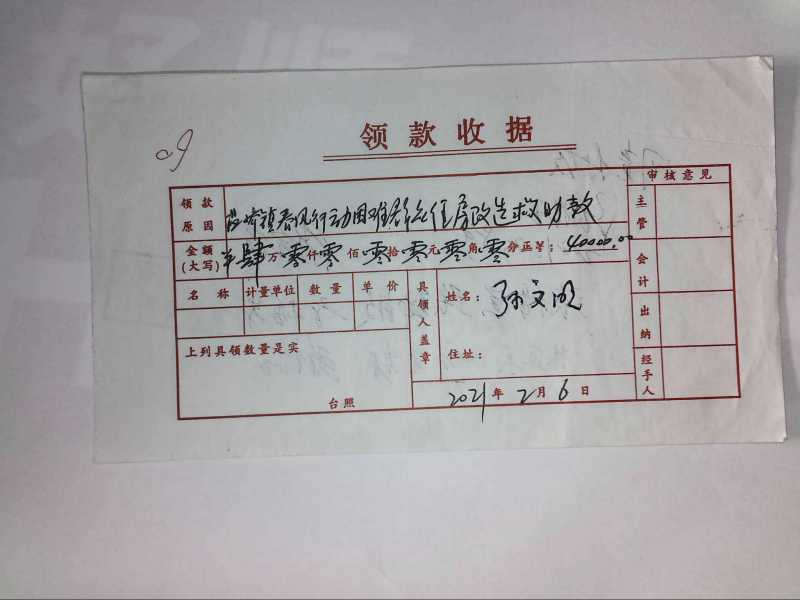 领款收据
审核意见
领款原因 镇春风行动困难群众住房改造救助款
主管
金额(大写) 肆万零仟零佰零拾零元零角零分正¥:40000.00
会计
名称 计量单位 数量 单价 具领人盖章 姓名:孙文明
出纳
上列具领数量是实 住址:
经手人
台照 2021年2月6日